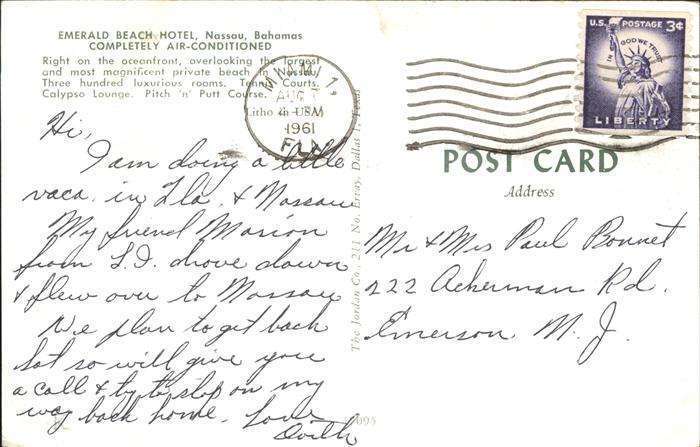 EMERALD BEACH HOTEL, Nassau, Bahamas
COMPLETELY AIR-CONDITIONED
Right on the oceanfront, overlooking the largest
and most magnificent private beach in Nassau.
Three hundred luxurious rooms. Tennis Courts.
Calypso Lounge. Pitch 'n' Putt Course.
Litho in USA
MIAMI,
AUG
PM
1961
FLA
U.S. POSTAGE 3¢
IN GOD WE TRUST
LIBERTY
POST CARD
Address
Hi,
I am doing a little
vaca. in Fla. & Nassau
My friend Marion
from L.I. drove down
& flew over to Nassau
We plan to get back
Sat so will give you
a call & try to stop on my
way back home. Love
Mr & Mrs Paul Bonnet
222 Ackerman Rd.
Emerson, N. J.
The Jordan Co., 211 No. Ervay, Dallas 1, Texas